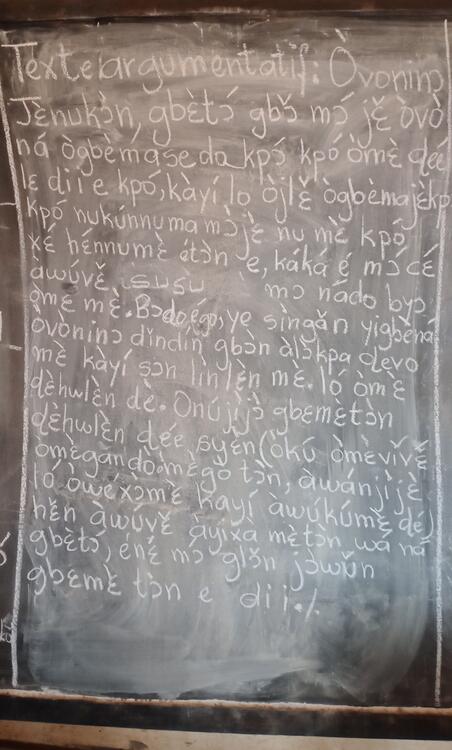 Texte argumentatif: Òvoninɔ
Jɛ̀nukɔ̀n, gbɛ̀tɔ́ gbɔ̌ mɔ́ jɛ̌ òvò
ná ògbèmásedo kpɔ́ kpó òmɛ̀ ɖéé
lɛ dii e kpó, kàyí lo òjlɛ̌ ògbèmajɛ̀kp
kpó nukúnnuma mɔ̀jɛ̀ nu mɛ̀ kpó
xɛ́ hɛ́nnumɛ̀ étɔ̀n e, káká é mɔ cɛ́
àwúvɛ̌ susu mɔ nádo byɔ
òmɛ̀ mɛ̀. Bɔdoéɔ, ye sìngǎn yigbèna
òvònìnɔ dìndín gbɔn àlɔ̀kpa ɖevo
mɛ̀ kàyí sɔn lìnlɛ̀n mɛ̀. ló òmɛ̀
ɖèhwlɛ̀n ɖè. Onújìjɔ̀ gbɛmɛtɔ̀n
ɖèhwlɛ̀n ɖée syɛ́n (òkú òmɛvívɛ̌
òmɛ̀gándò.mɛ̀gǒ tɔ̀n, àwánjìjɛ̀
ló òwéxɔ̀mɛ̀ kàyí àwúkúmɛ̀ ɖé)
hɛ̌n àwúvɛ̌ àyìxà mɛ̀tɔ̀n wá nǎ
gbɛ̀tɔ́, éné mɔ glɔ̌n jɔ̀wǔn
gbɛmɛ̀ tɔ̀n e dii./.